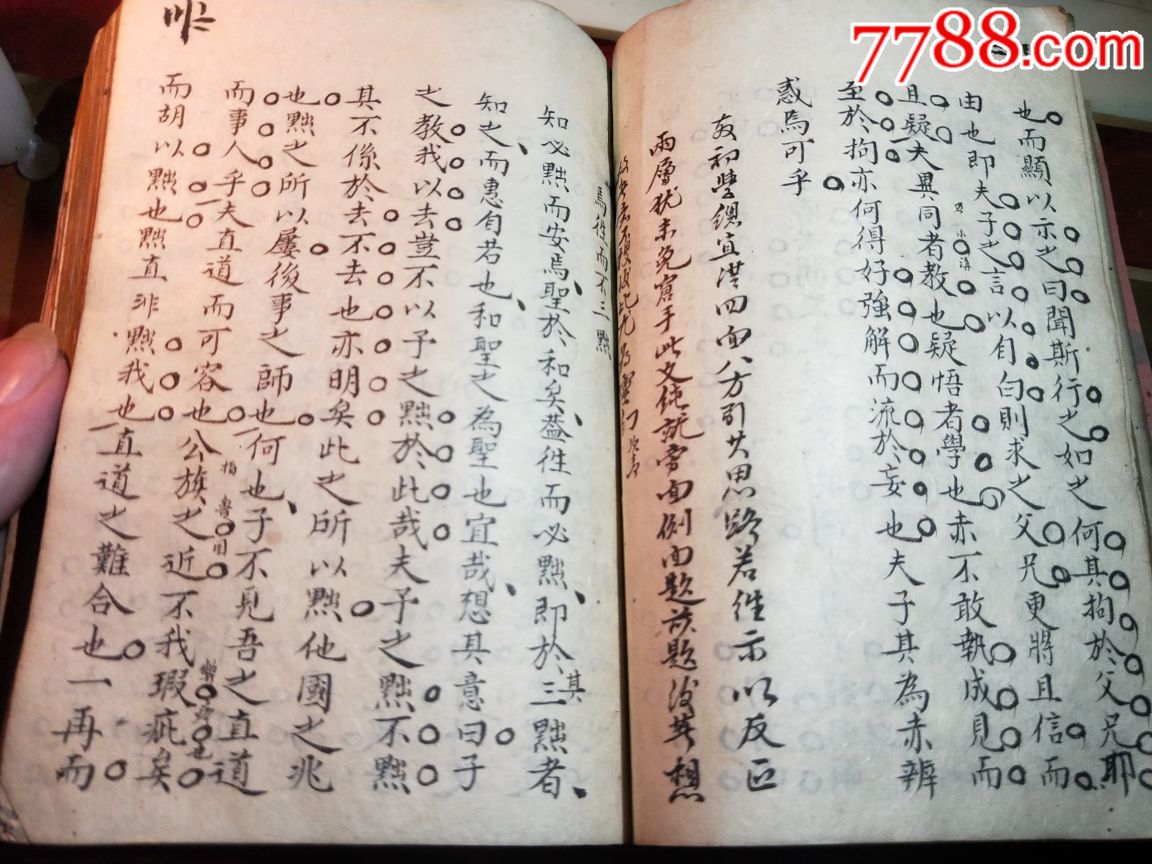 7788.com
也而顯以示之曰聞斯行之如之何其拘於父兄耶
由也即夫子之言以自白則求之父兄更將且信而
且疑夫異同者教也疑悟者學也赤不敢執成見而
至於拘亦何得好強解而流於妄也夫子其為赤辨
惑焉可乎
初學鎖宜洪四面八方引其思路若徒示以反正
兩層猶未免窘手此文純就旁面側面題前題後其想
焉往而不三黜
知必黜而安焉聖於和矣蓋往而必黜即於其三黜者
知之而惠自若也和聖之為聖也宜哉想其意曰子
之教我以去豈不以子之黜於此哉夫子之黜不黜
其不係於去不去也亦明矣此之所以黜他國之兆
也黜之所以屢後事之師也何也子不見吾之直道
而事人乎夫直道而可容也公族之近不我瑕疵矣
而胡以黜也黜直非黜我也直道之難合也一再而